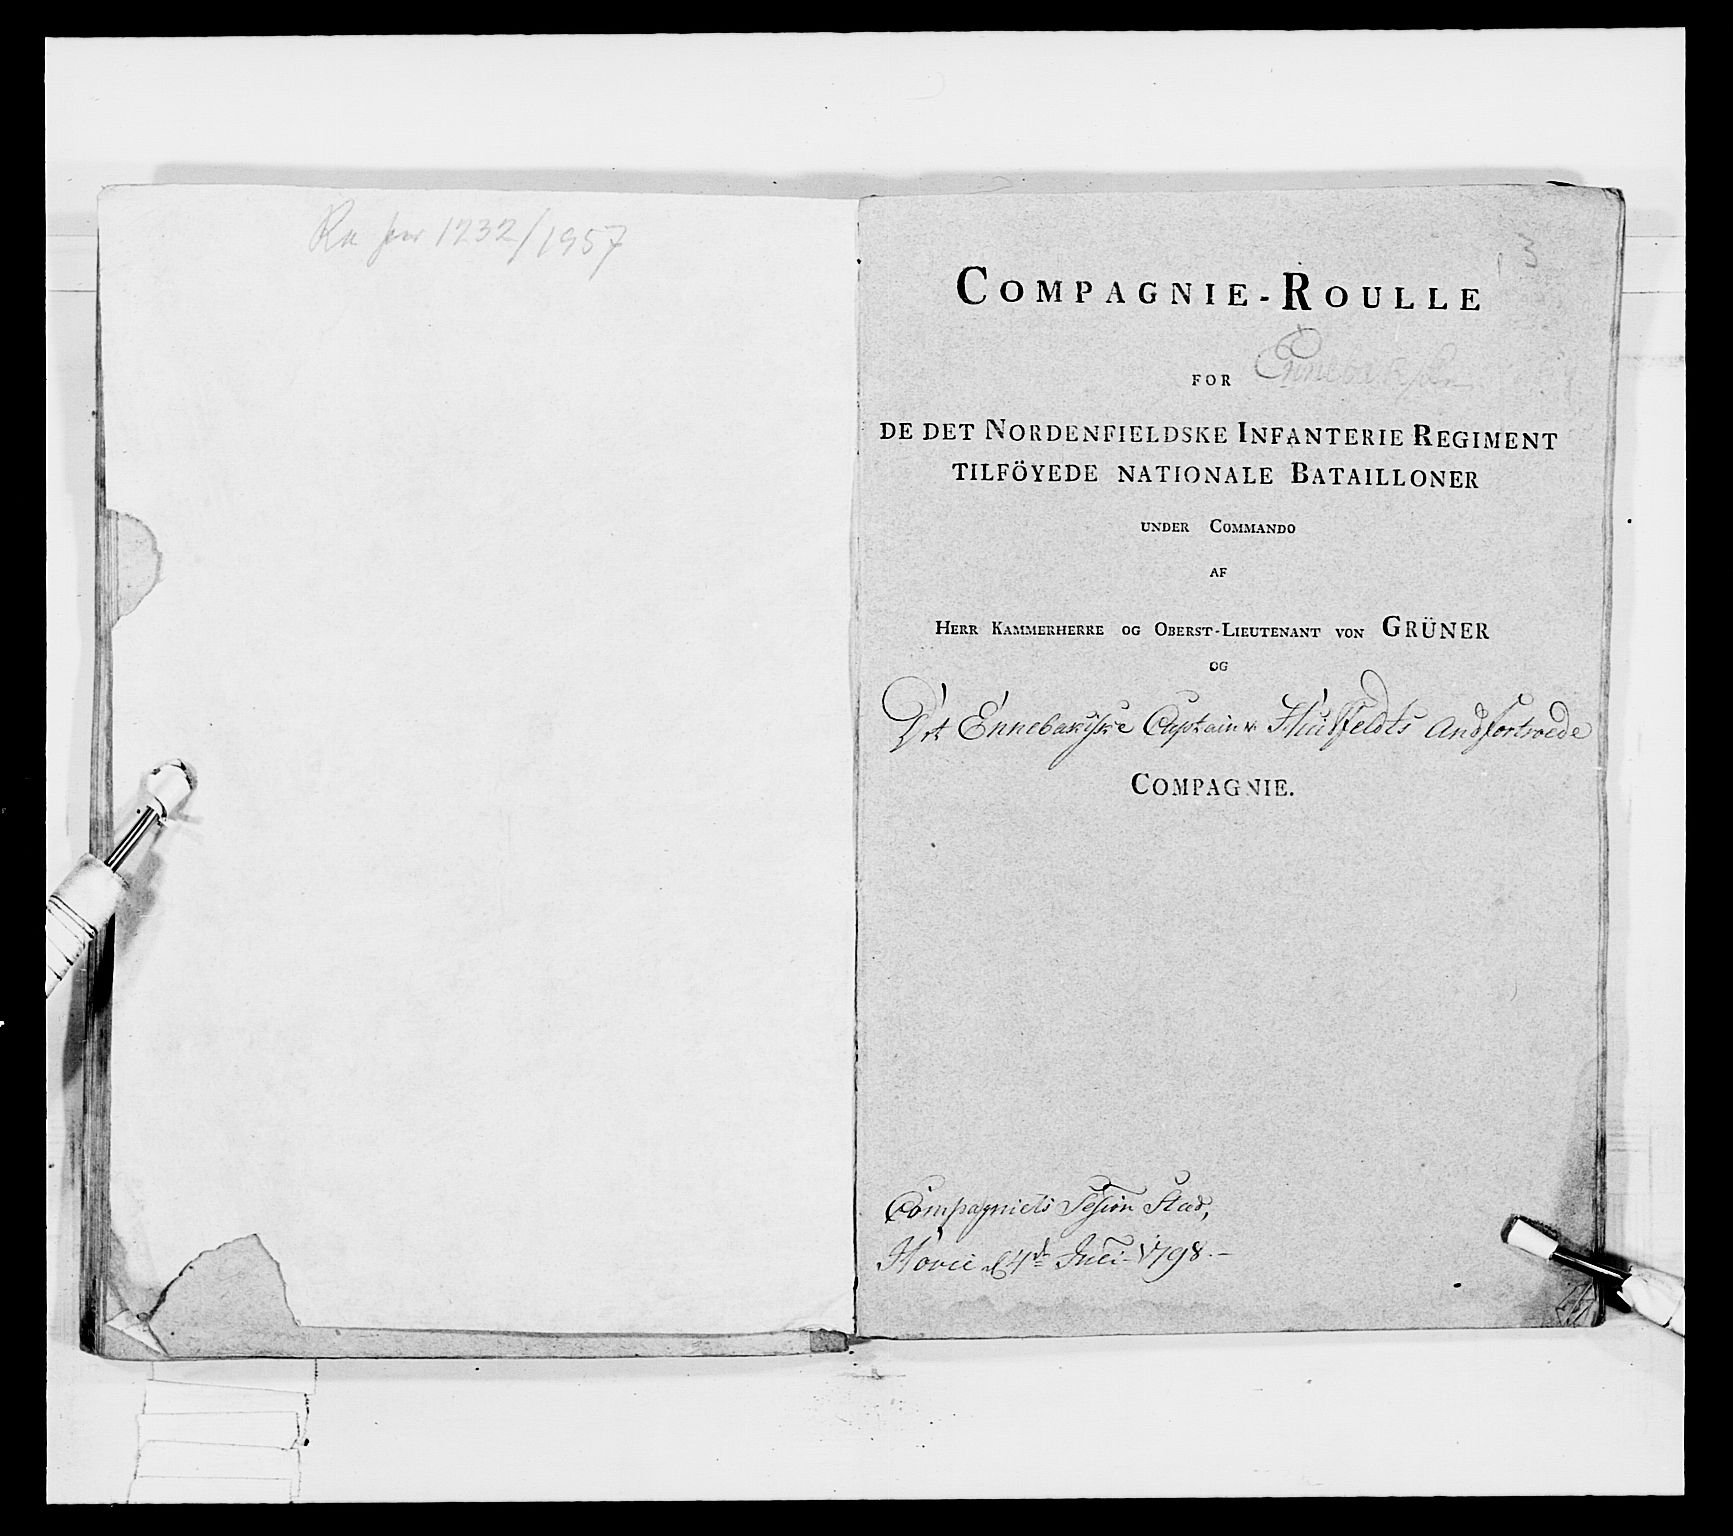 1232/1957
3
COMPAGNIE-ROULLE
FOR
DE DET NORDENFIELDSKE INFANTERIE REGIMENT
TILFÖYEDE NATIONALE BATAILLONER
UNDER COMMANDO
AF
HERR KAMMERHERRE OG OBERST-LIEUTENANT VON GRÜNER
OG
Det Ennebakske Captain v. Huitfeldts Andfortroede
COMPAGNIE.
Compagniets Session Stad,
d 4de Juli 1798.-